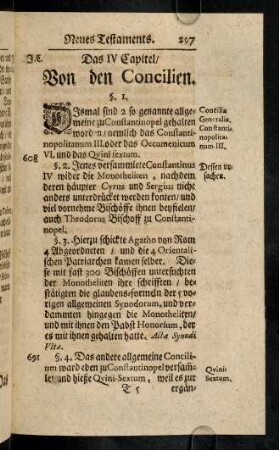 Neues Testaments. 297
J.C. Das IV Capitel/
Von den Concilien.
§. 1.
DJsmal sind 2 so genannte allge-
meine zu Constantinopel gehalten
word n/ nemlich das Constanti-
nopolitanum III. oder das Oecumenicum
VI. und das Qvini sextum.
Concilia
Generalia,
Constanti-
nopolita-
num III.
608 §. 2. Jenes versammlete Constantinus
IV wider die Monotheliten, nachdem
deren häupter Cyrus und Sergius nicht
anders unterdrücket werden konten/ und
viel vornehme Bischöffe ihnen beyfielen/
auch Theodorus Bischoff zu Constanti-
nopel.
Dessen ur-
sachen.
§. 3. Hierzu schickte Agatho von Rom
4 Abgeordneten / und die 4 Orientali-
schen Patriarchen kamen selber. Die-
se mit fast 300 Bischöffen untersuchten
der Monotheliten ihre schrifften / be-
stätigten die glaubens-formeln der 5 vo-
rigen allgemeinen Synodorum, und ver-
dammten hingegen die Monotheliten/
und mit ihnen den Pabst Honorium, der
es mit ihnen gehalten hatte. Acta Synodi
Vita.
691 §. 4. Das andere allgemeine Concili-
um ward eben zu Constantinopel versam-
let/ und hieße Qvini-Sextum, weil es zur
Qvini-
Sextum.
T 5 ergän-